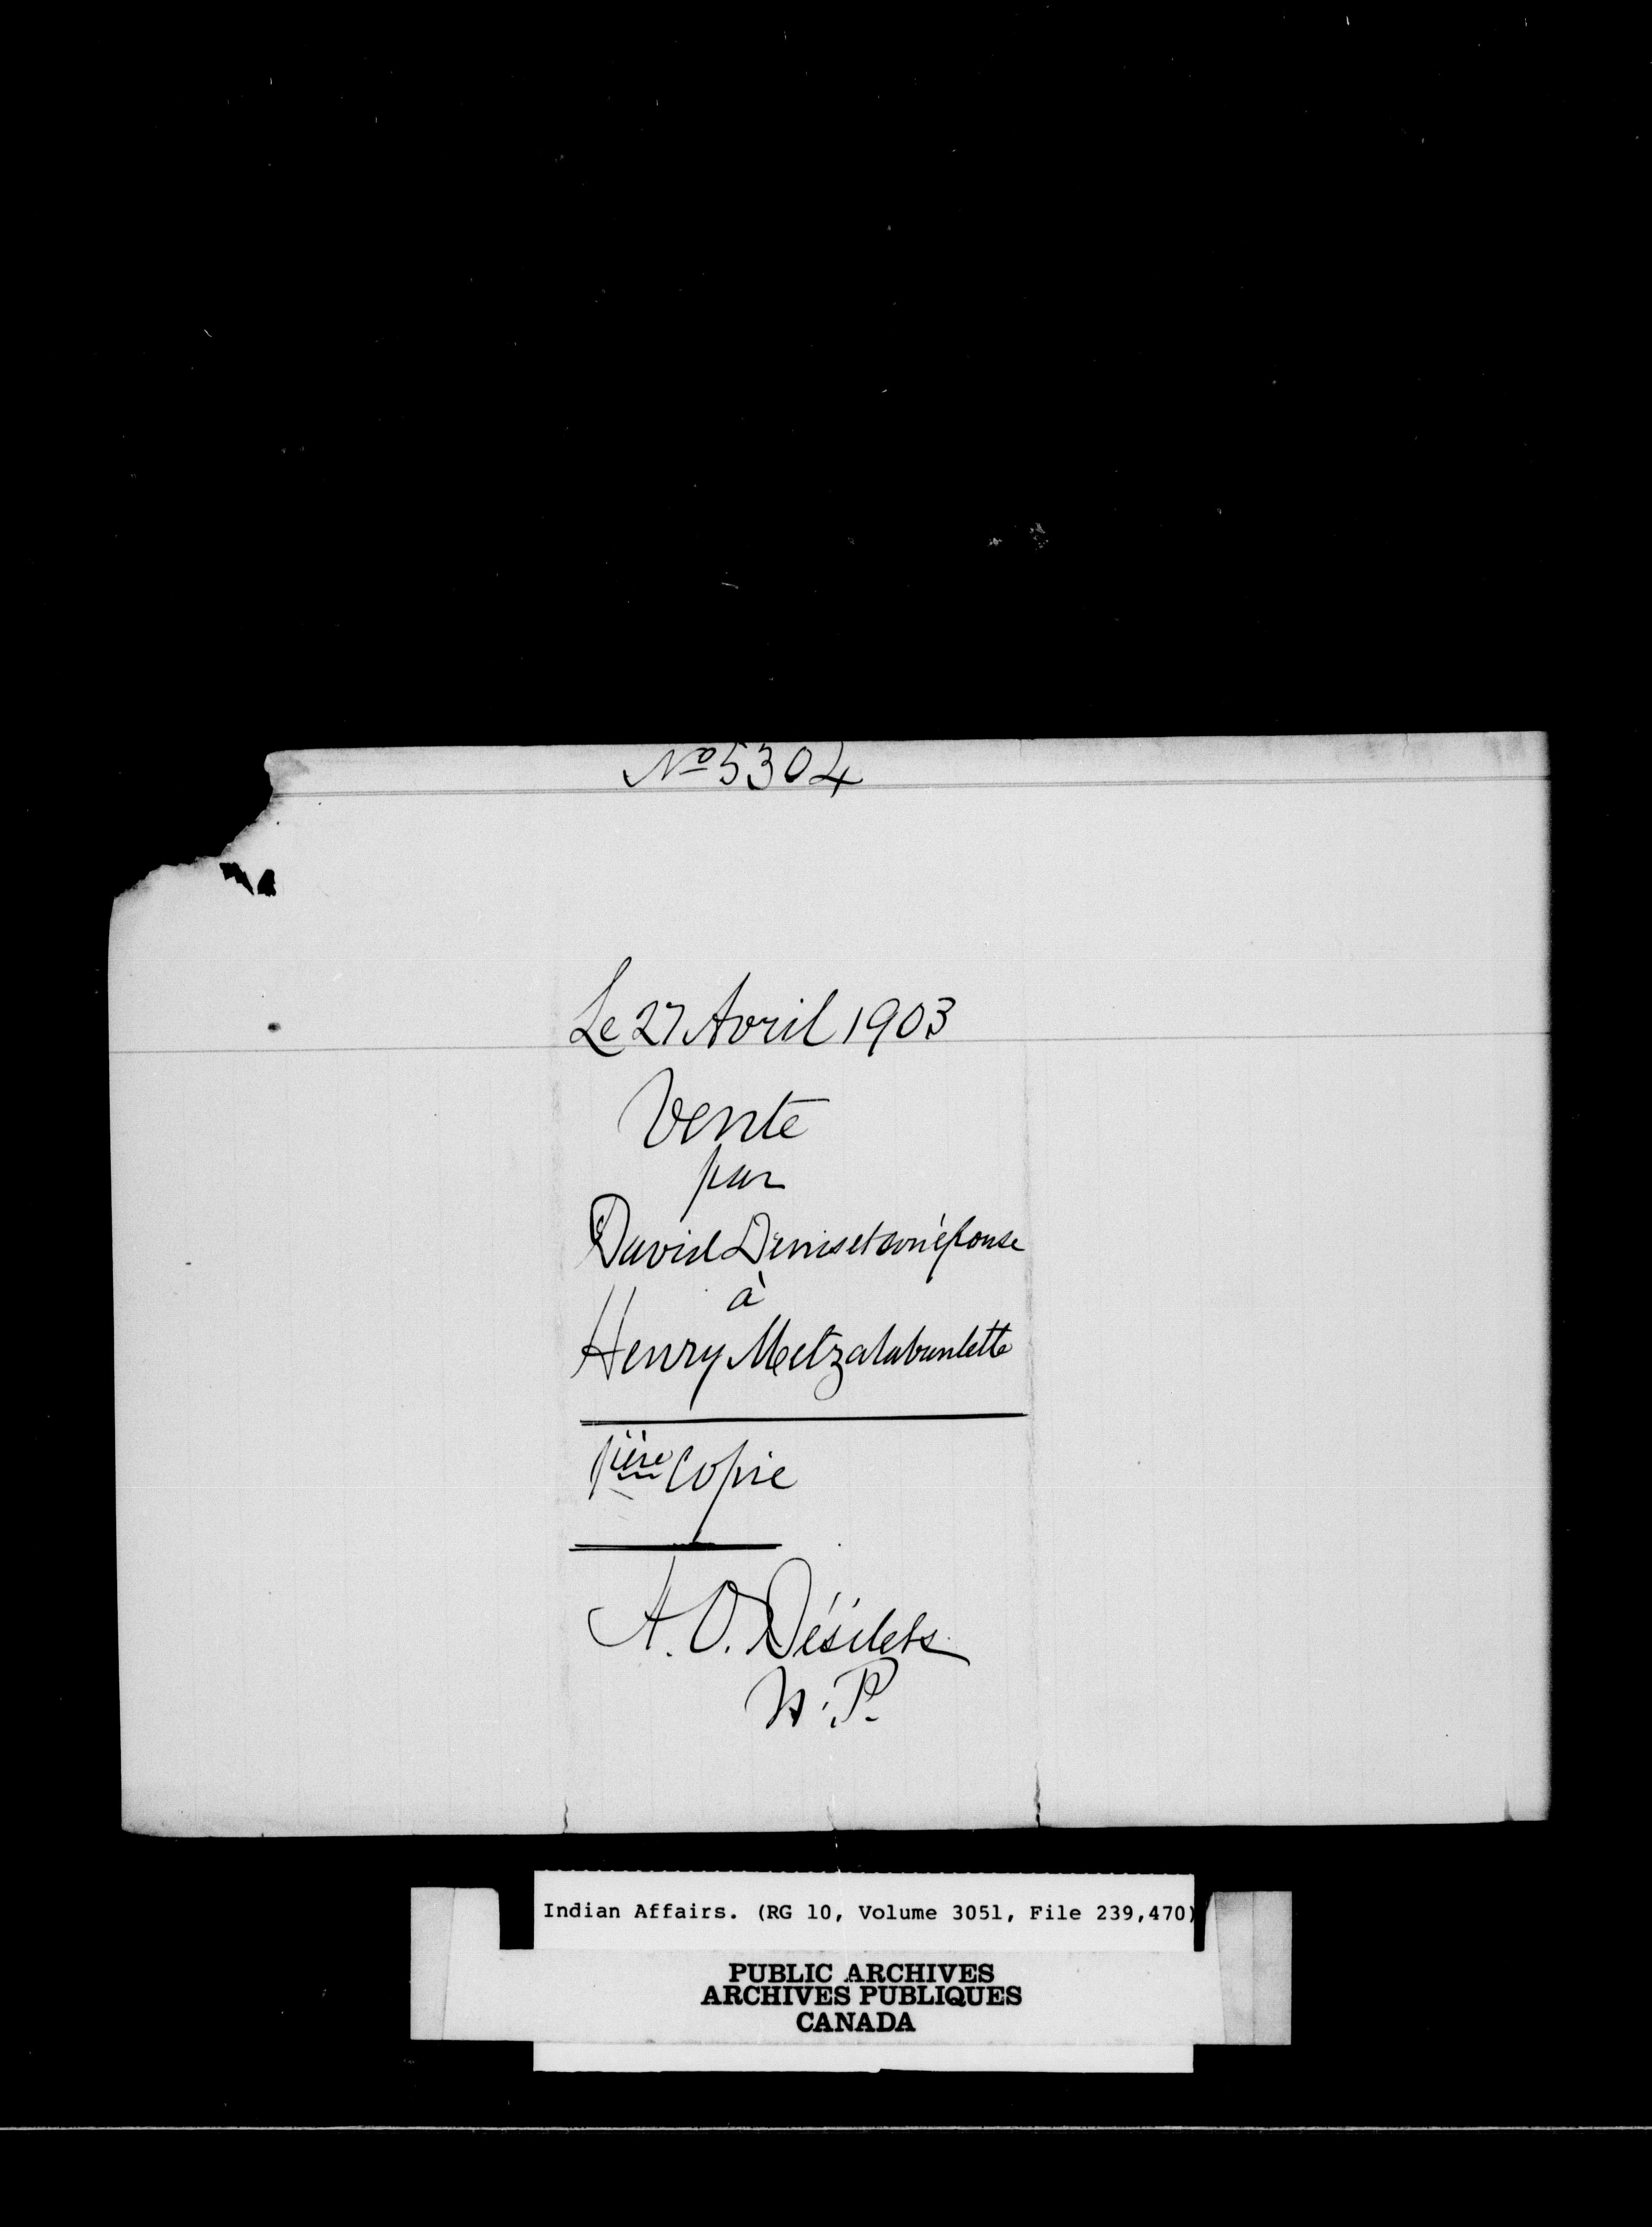 No 5304
Le 27 Avril 1903
Vente
par
David Denis et son épouse
à
Henry Metzalabanlette
1ière Copie
A. O. Désilets
N. P.
Indian Affairs. (RG 10, Volume 3051, File 239,470)
PUBLIC ARCHIVES
ARCHIVES PUBLIQUES
CANADA